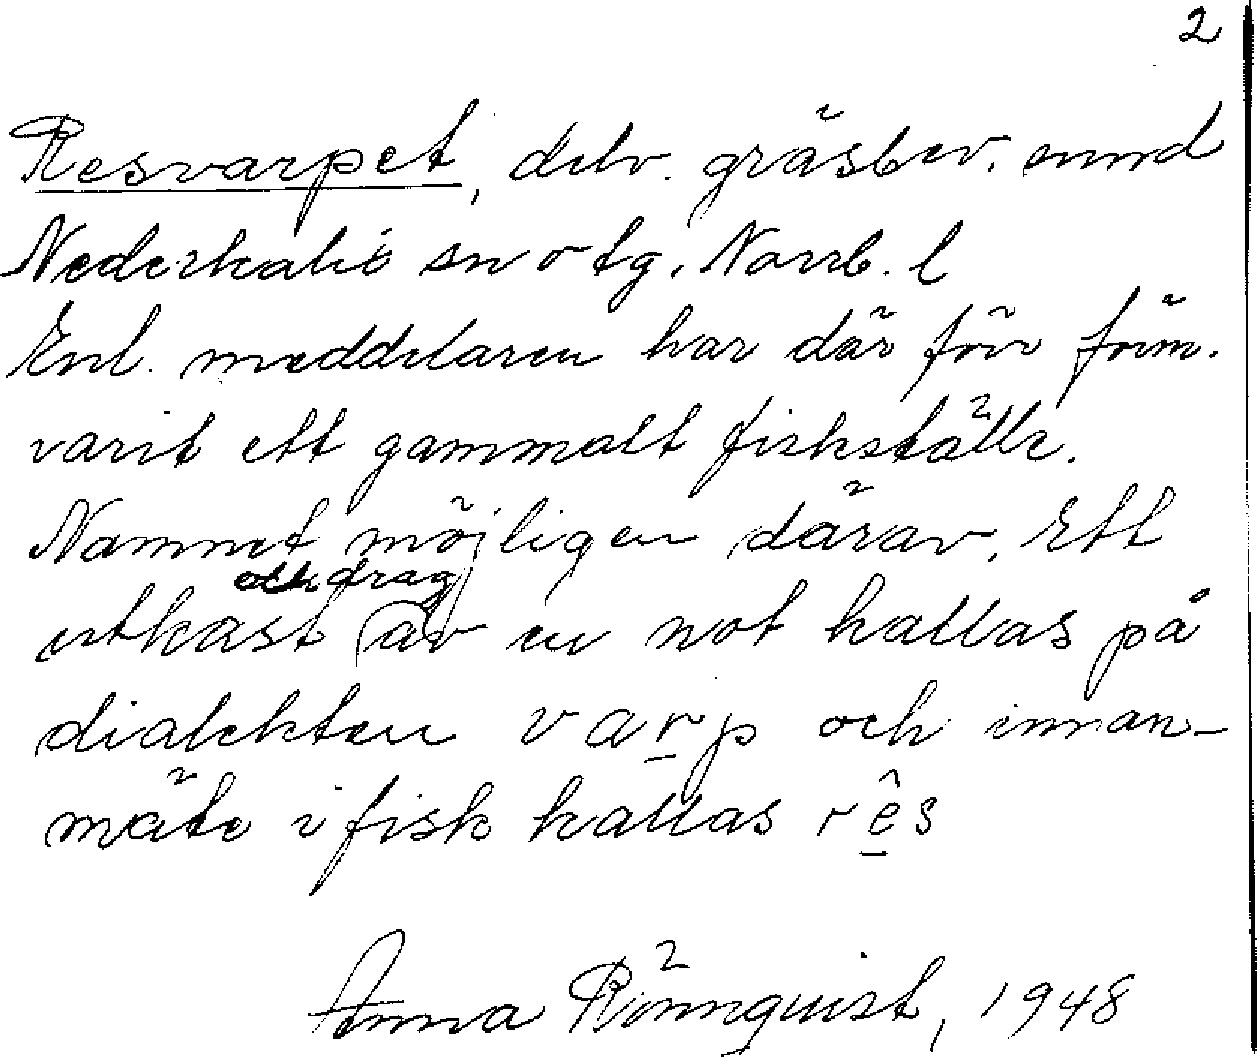 2
Resvarpet, delv. gräsbev. sund
Nederkalix sn o tg. Norrb. l
Enl. meddelaren har där förr förm.
varit ett gammalt fiskställe.
Namnet möjligen därav. Ett
och drag
utkast av en not kallas på
dialekten varp och innan-
mäte i fisk kallas rês
Anna Rönnquist, 1948